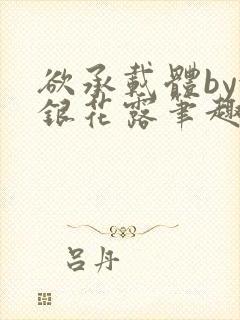 欲承載體by
銀花露筆趣
吕丹